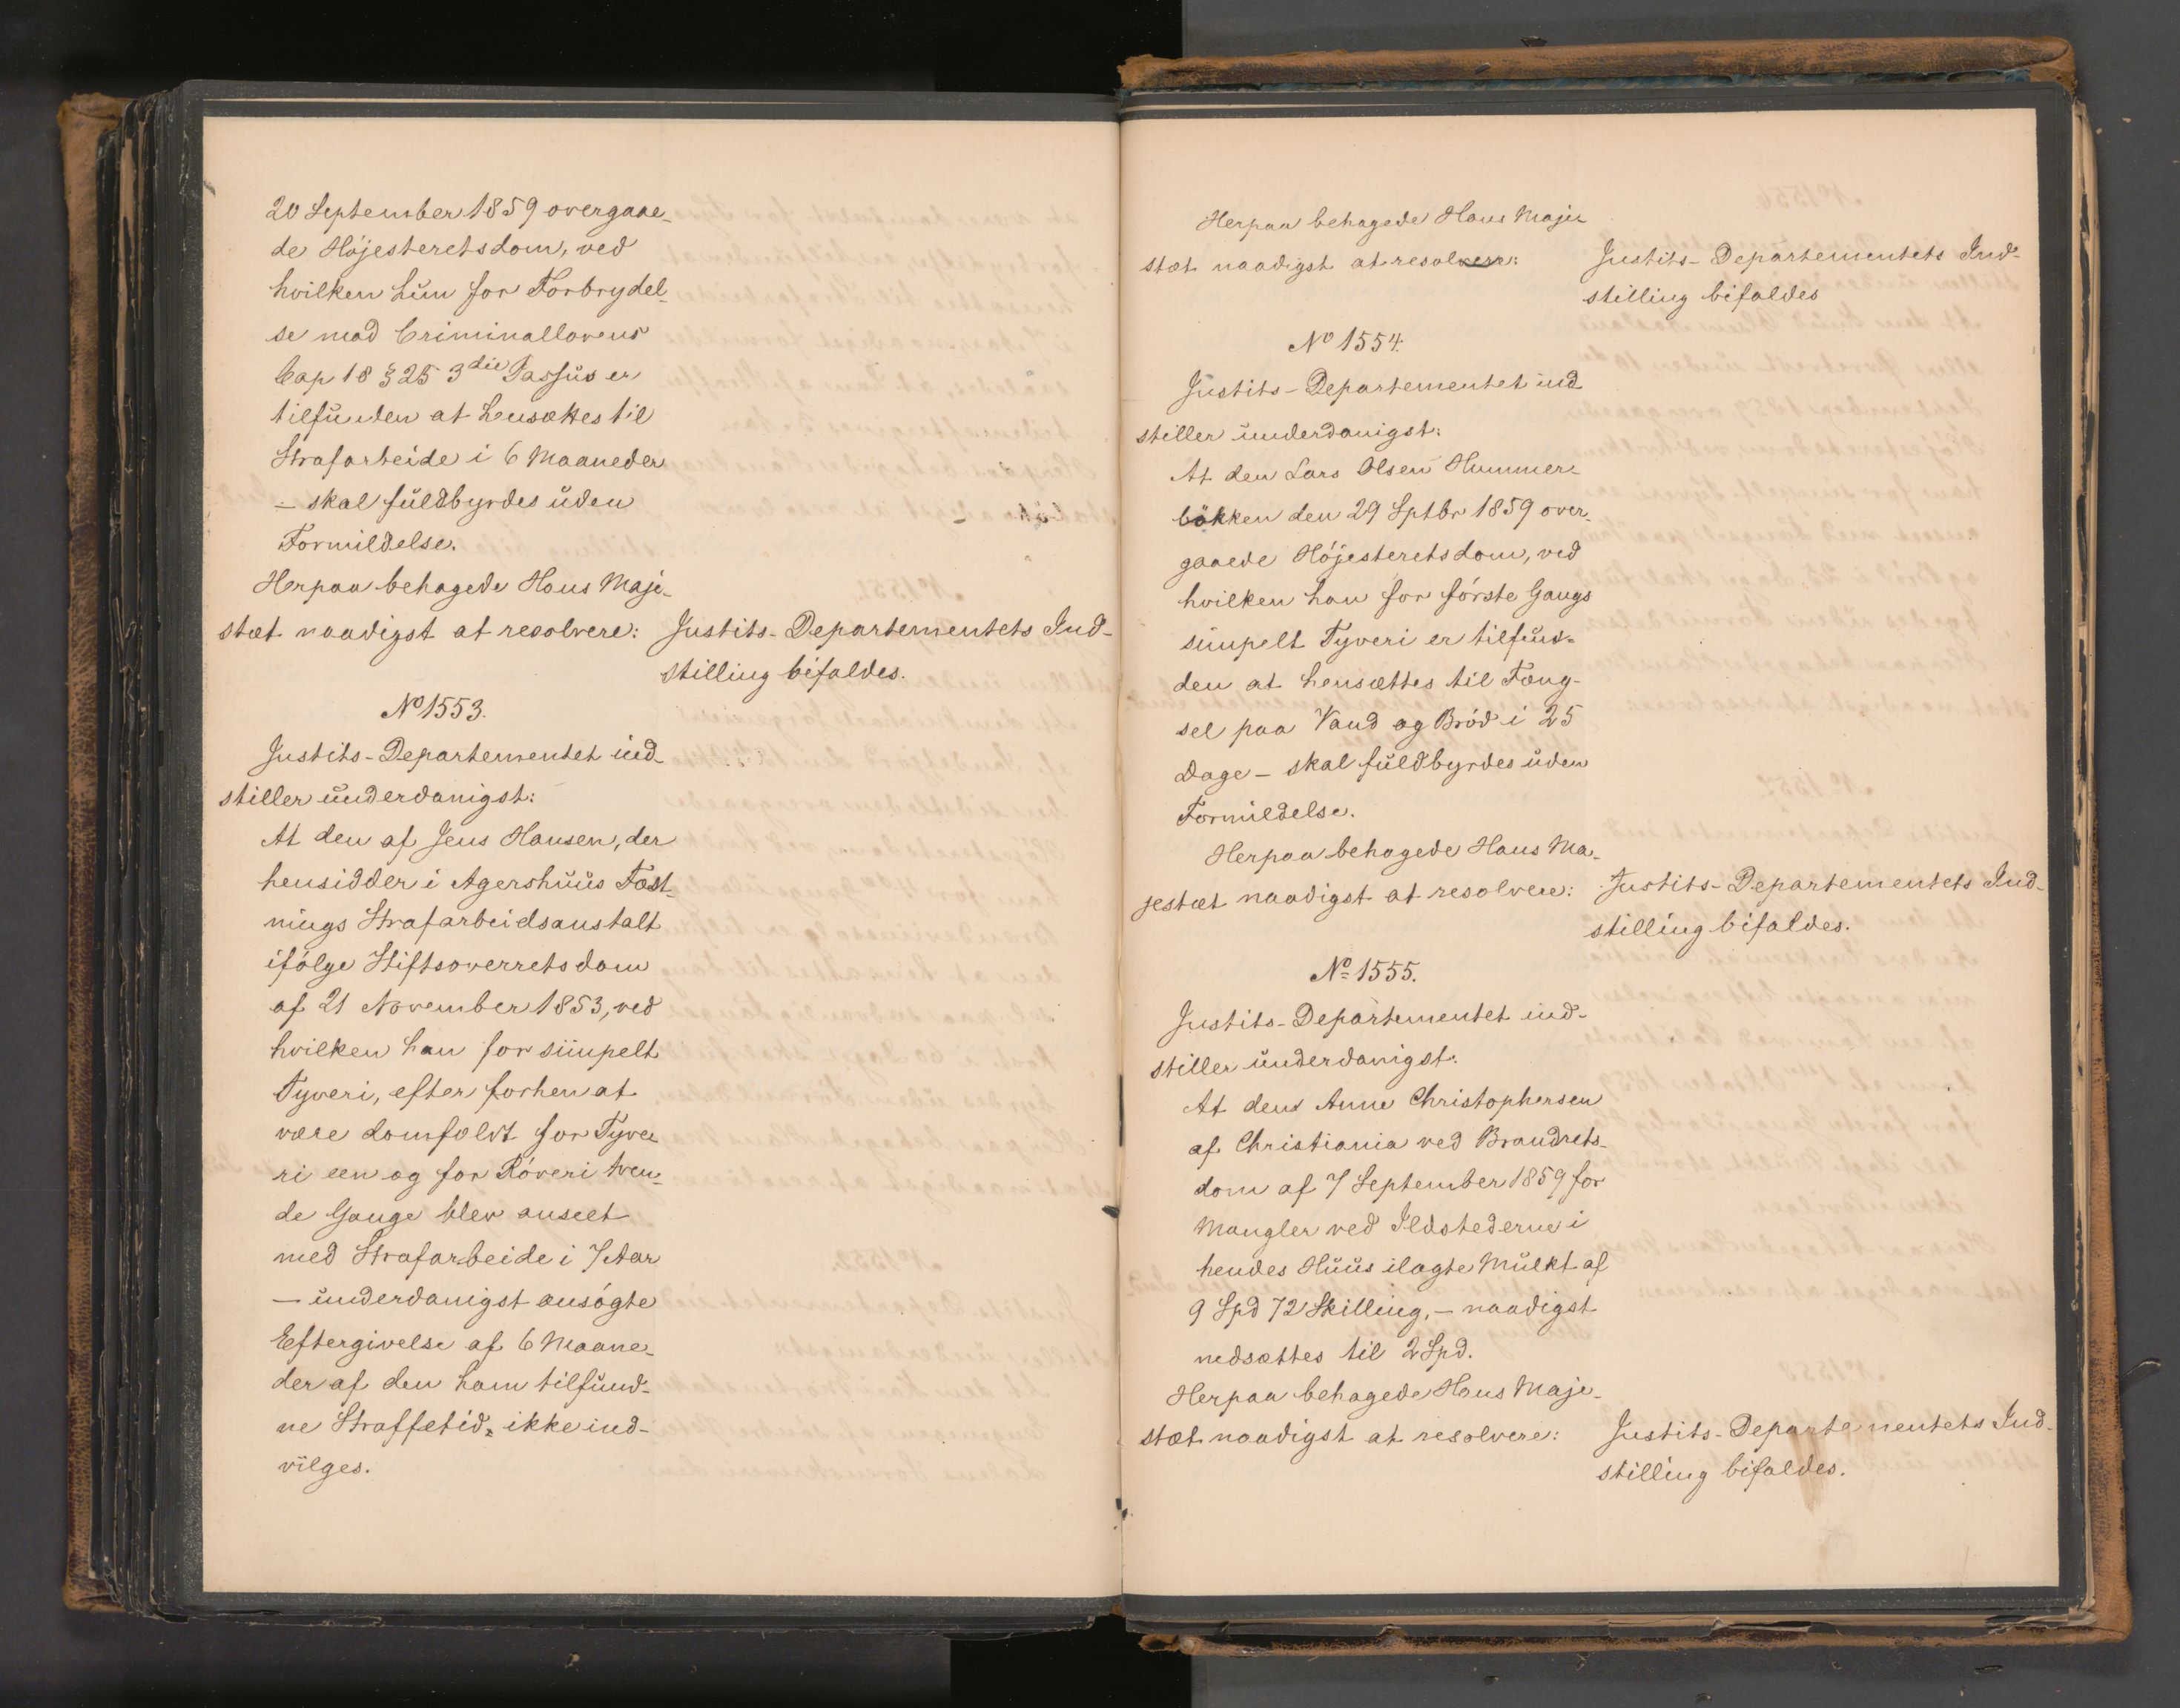 20 September 1859 overgaae-
de Höjesteretsdom, ved
hvilken hun for Forbrydel-
se mod Criminallovens
Cap 18 § 25 3die Passus er
tilfunden at hensættes til
Strafarbeide i 6 Maaneder
– skal fuldbyrdes uden
Formildelse.
Herpaa behagede Hans Maje-
stæt naadigst at resolvere: Justits-Departementets Ind-
stilling bifaldes.
No 1553.
Justits-Departementet ind-
stiller underdanigst:
At den af Jens Hansen, der
hensidder i Agershuus Fæst-
nings Strafarbeidsanstalt
ifölge Stiftsoverretsdom
af 21 November 1853, ved
hvilken han for simpelt
Tyveri, efter forhen at
være domfældt for Tyve-
ri een og for Röveri tven-
de Gange blev anseet
med Strafarbeide i 7 Aar
– underdanigst ansögte
Eftergivelse af 6 Maane-
der af den ham tilfund-
ne Straffetid, ikke ind-
vilges.
Herpaa behagede Hans Maje
stæt naadigst at resolvere: Justits-Departementets Ind-
stilling bifaldes
No 1554.
Justits-Departementet ind
stiller underdanigst:
At den Lars Olsen Hummer-
bökken den 29 Sptbr 1859 over-
gaaede Höjesteretsdom, ved
hvilken han for förste Gangs
simpelt Tyveri er tilfun-
den at hensættes til Fæng-
sel paa Vand og Bröd i 25
Dage – skal fuldbyrdes uden
Formildelse.
Herpaa behagede Hans Ma-
jestæt naadigst at resolvere: Justits-Departementets Ind-
stilling bifaldes.
No 1555.
Justits-Departementet ind-
stiller underdanigst:
At den Anne Christophersen
af Christiania ved Brandrets-
dom af 7 September 1859 for
Mangler ved Ildstederne i
hendes Huus ilagte Mulkt af
9 Spd 72 Skilling, – naadigst
nedsættes til 2 Spd.
Herpaa behagede Hans Maje-
stæt naadigst at resolvere: Justits-Departementets Ind-
stilling bifaldes.